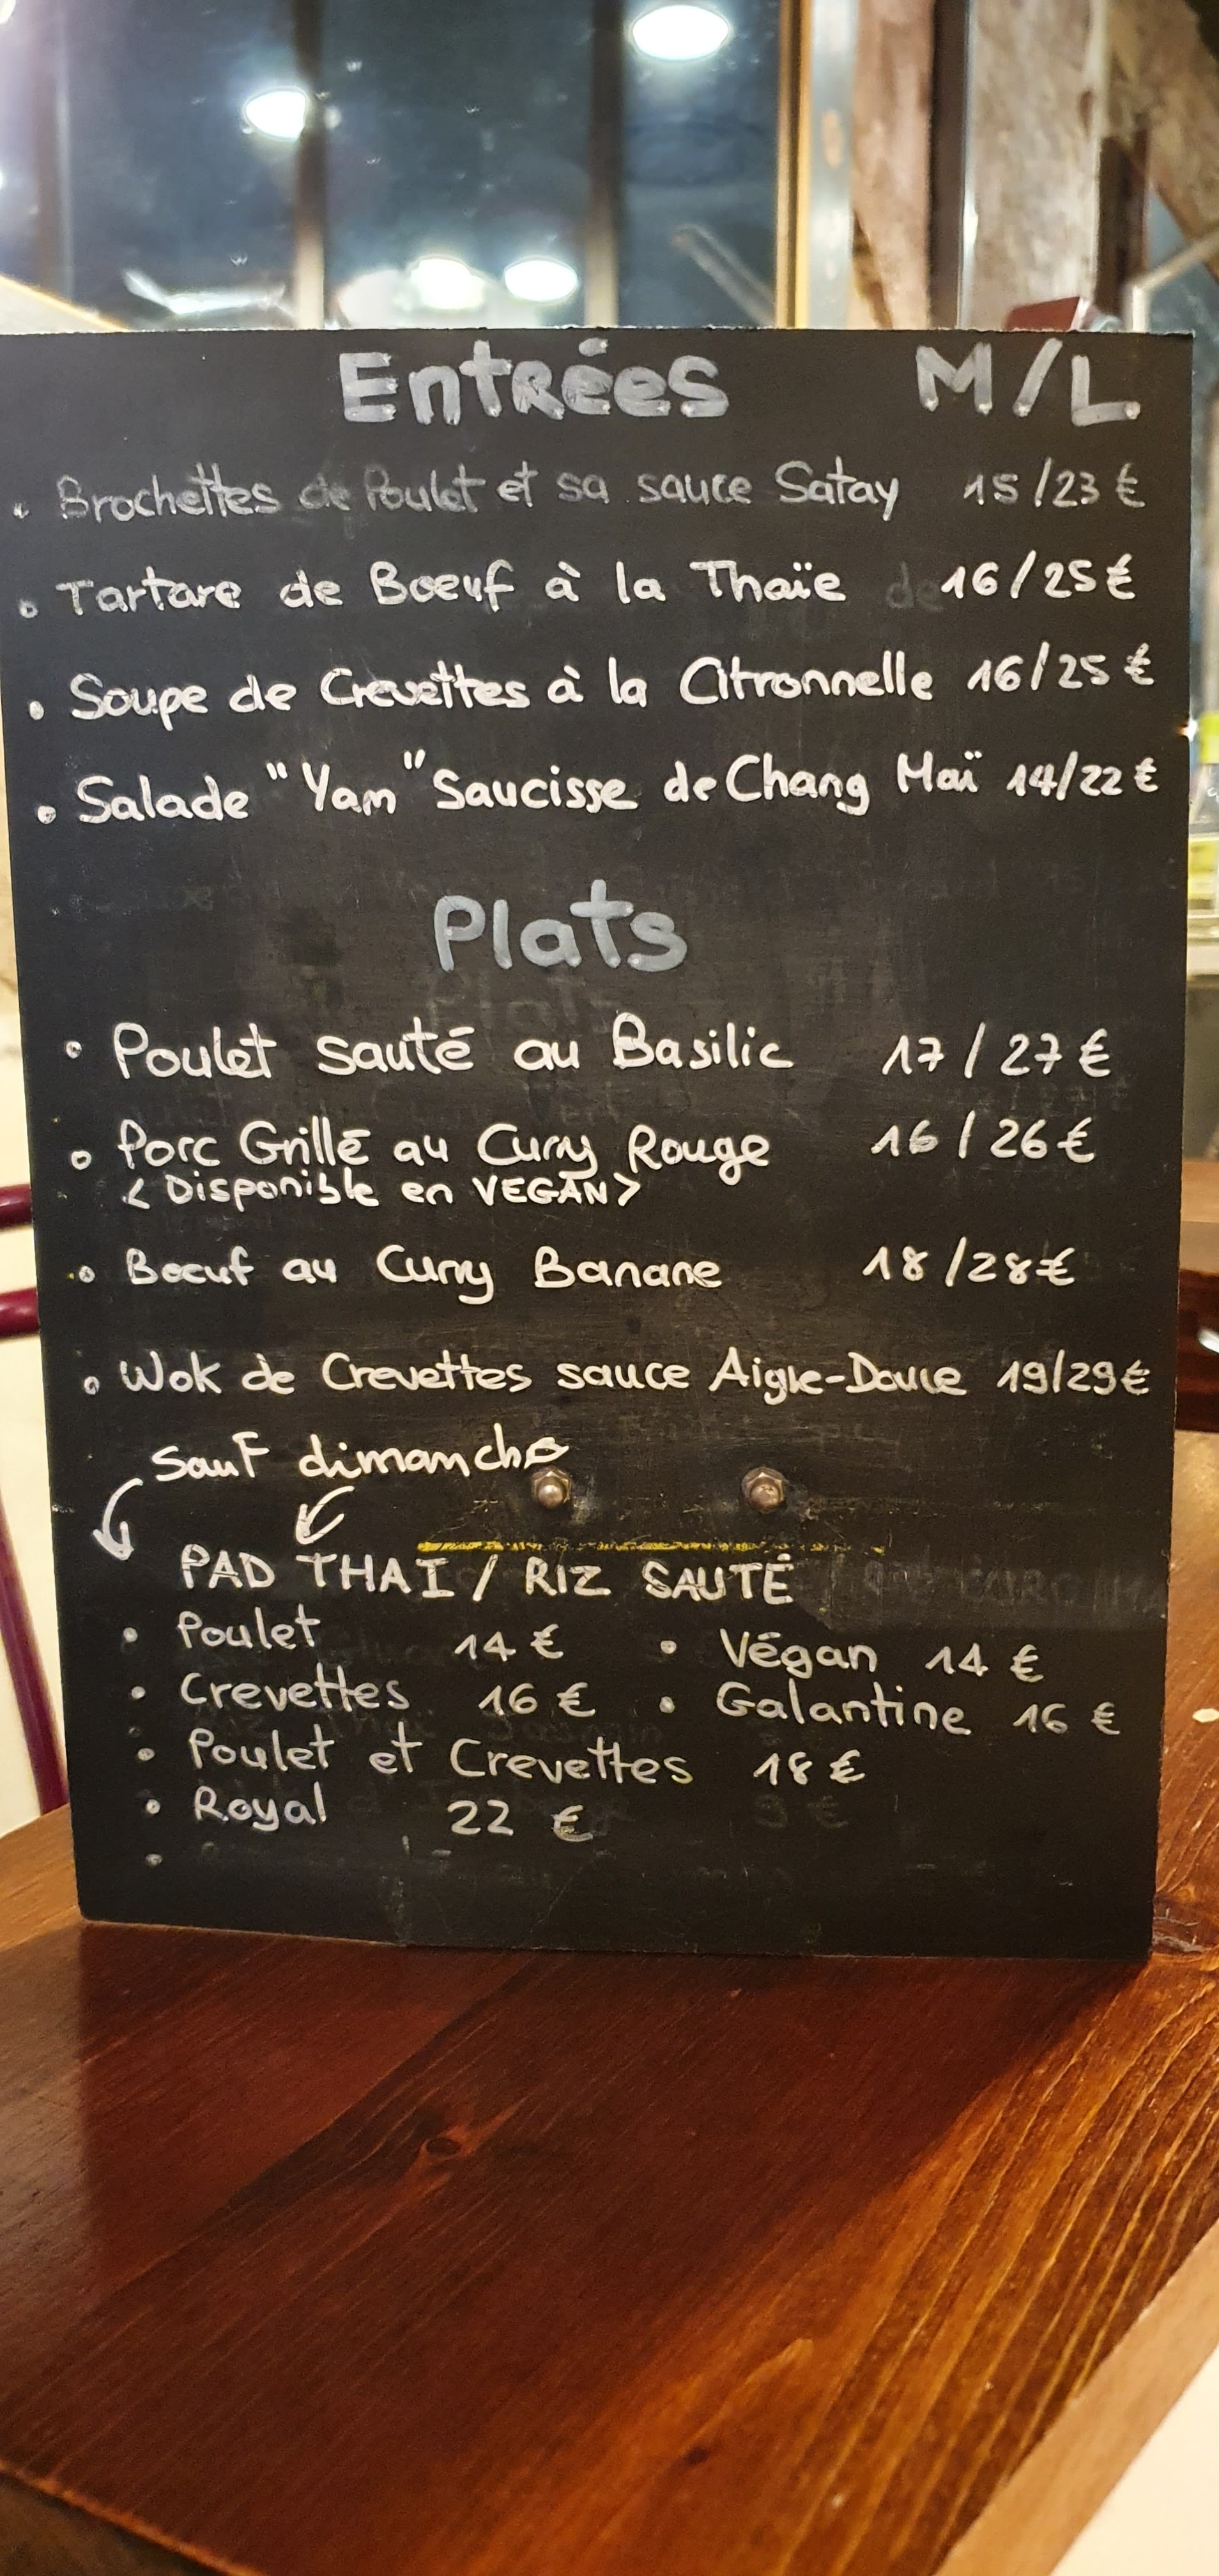 Entrées M/L
• Brochettes de Poulet et sa sauce Satay 15/23 €
• Tartare de Boeuf à la Thaïe 16/25€
• Soupe de Crevettes à la Citronnelle 16/25 €
• Salade "Yam" Saucisse de Chang Maï 14/22 €
Plats
• Poulet sauté au Basilic 17/27 €
• Porc Grillé au Curry Rouge 16/26€
< Disponible en VEGAN>
• Boeuf au Curry Banane 18/28€
• Wok de Crevettes sauce Aigre-Douce 19/29€
Sauf dimanche
PAD THAI / RIZ SAUTÉ
• Poulet 14 € • Végan 14 €
• Crevettes 16 € • Galantine 16 €
• Poulet et Crevettes 18 €
• Royal 22 €
•